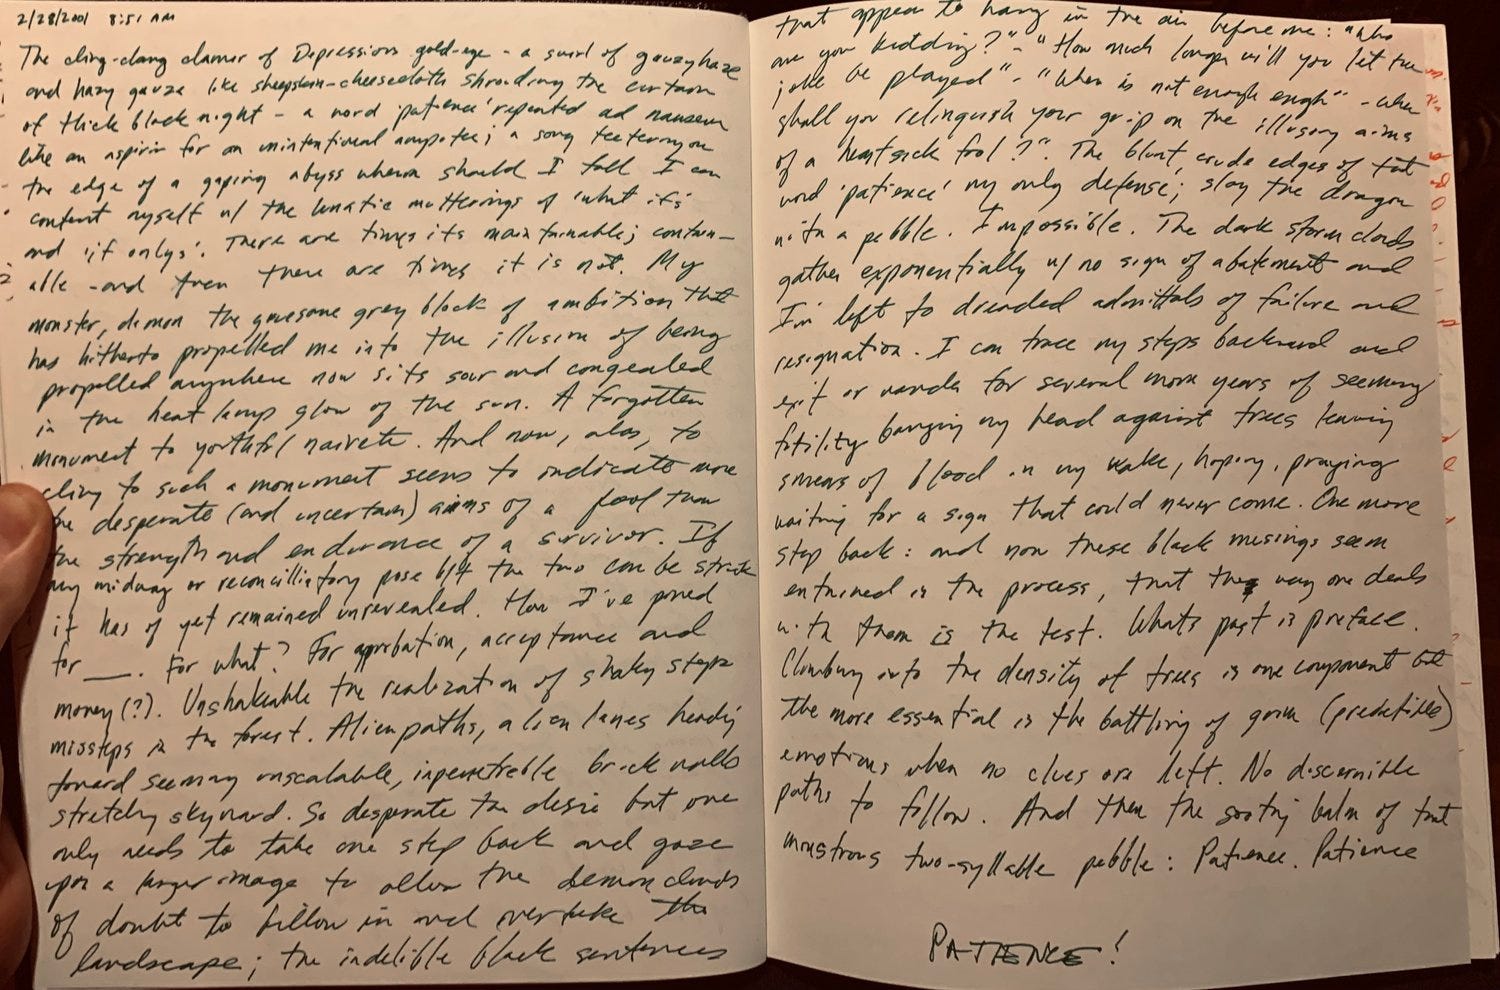 2/28/2001 8:51 AM
The cling-clang clamor of Depressions gold-eye - a swirl of gauzy haze
and hazy gauze like sheepskin-cheesecloth shrouding the curtain
of thick black night - a word 'patience' repeated ad nauseum
like an aspirin for an unintentional amputee; a song teetering on
the edge of a gaping abyss wherein should I fall I can
content myself w/ the lunatic mutterings of 'what ifs'
and 'if onlys'. There are times its maintainable; contain-
able - and then there are times it is not. My
monster, demon the gruesome grey block of ambition that
has hitherto propelled me into the illusion of being
propelled anywhere now sits sour and congealed
in the heat lamp glow of the sun. A forgotten
monument to youthful naivete. And now, alas, to
cling to such a monument seems to indicate more
the desperate (and uncertain) aims of a fool than
the strength and endurance of a survivor. If
any midway or reconcilliatory pose b/t the two can be struck
it has of yet remained unrevealed. How I've pored
for ___. For what? For approbation, acceptance and
money (?). Unshakeable the realization of shaky steps
missteps in the forest. Alien paths, alien lanes heading
toward seeming unscalable, inpenetrable brick walls
stretching skyward. So desperate the desire but one
only needs to take one step back and gaze
upon a larger image to allow the demon clouds
of doubt to billow in and overtake the
landscape; the indelible black sentences
that appear to hang in the air before me: "Who
are you kidding?" - "How much longer will you let the
joke be played" - "When is not enough enough" - when
shall you relinquish your grip on the illusory aims
of a heartsick fool?". The blunt crude edges of that
word 'patience' my only defense; slay the dragon
with a pebble. Impossible. The dark storm clouds
gather exponentially w/ no sign of abatement and
I'm left to dreaded admittals of failure and
resignation. I can trace my steps backward and
exit or wander for several more years of seeming
futility banging my head against trees leaving
smears of blood in my wake, hoping, praying
waiting for a sign that could never come. One more
step back: and now these black musings seem
entwined in the process, that the way one deals
with them is the test. Whats past is preface.
Climbing into the density of trees is one component but
the more essential is the battling of grim (predictible)
emotions when no clues are left. No discernible
paths to follow. And then the sooting balm of that
monstrous two-syllable pebble: Patience. Patience
PATIENCE!